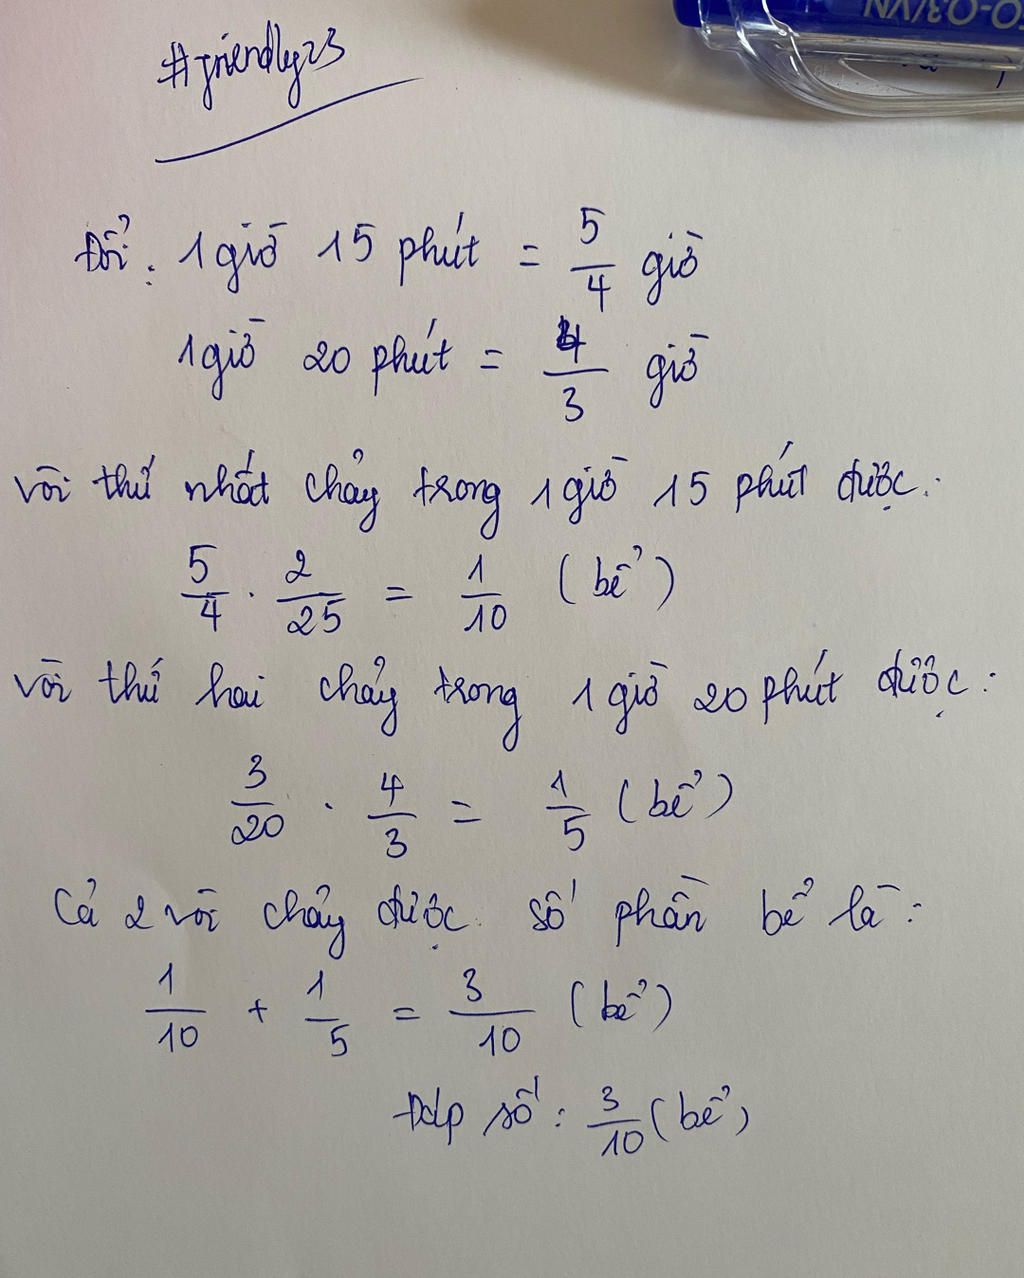 #friendly23
0-0.3/VN
Đổi: 1 giờ 15 phút = 5/4 giờ
1 giờ 20 phút = 4/3 giờ
vòi thứ nhất chảy trong 1 giờ 15 phút được:
5/4 . 2/25 = 1/10 (bể)
vòi thứ hai chảy trong 1 giờ 20 phút được:
3/20 . 4/3 = 1/5 (bể)
Cả 2 vòi chảy được số phần bể là:
1/10 + 1/5 = 3/10 (bể)
Đáp số: 3/10 (bể)